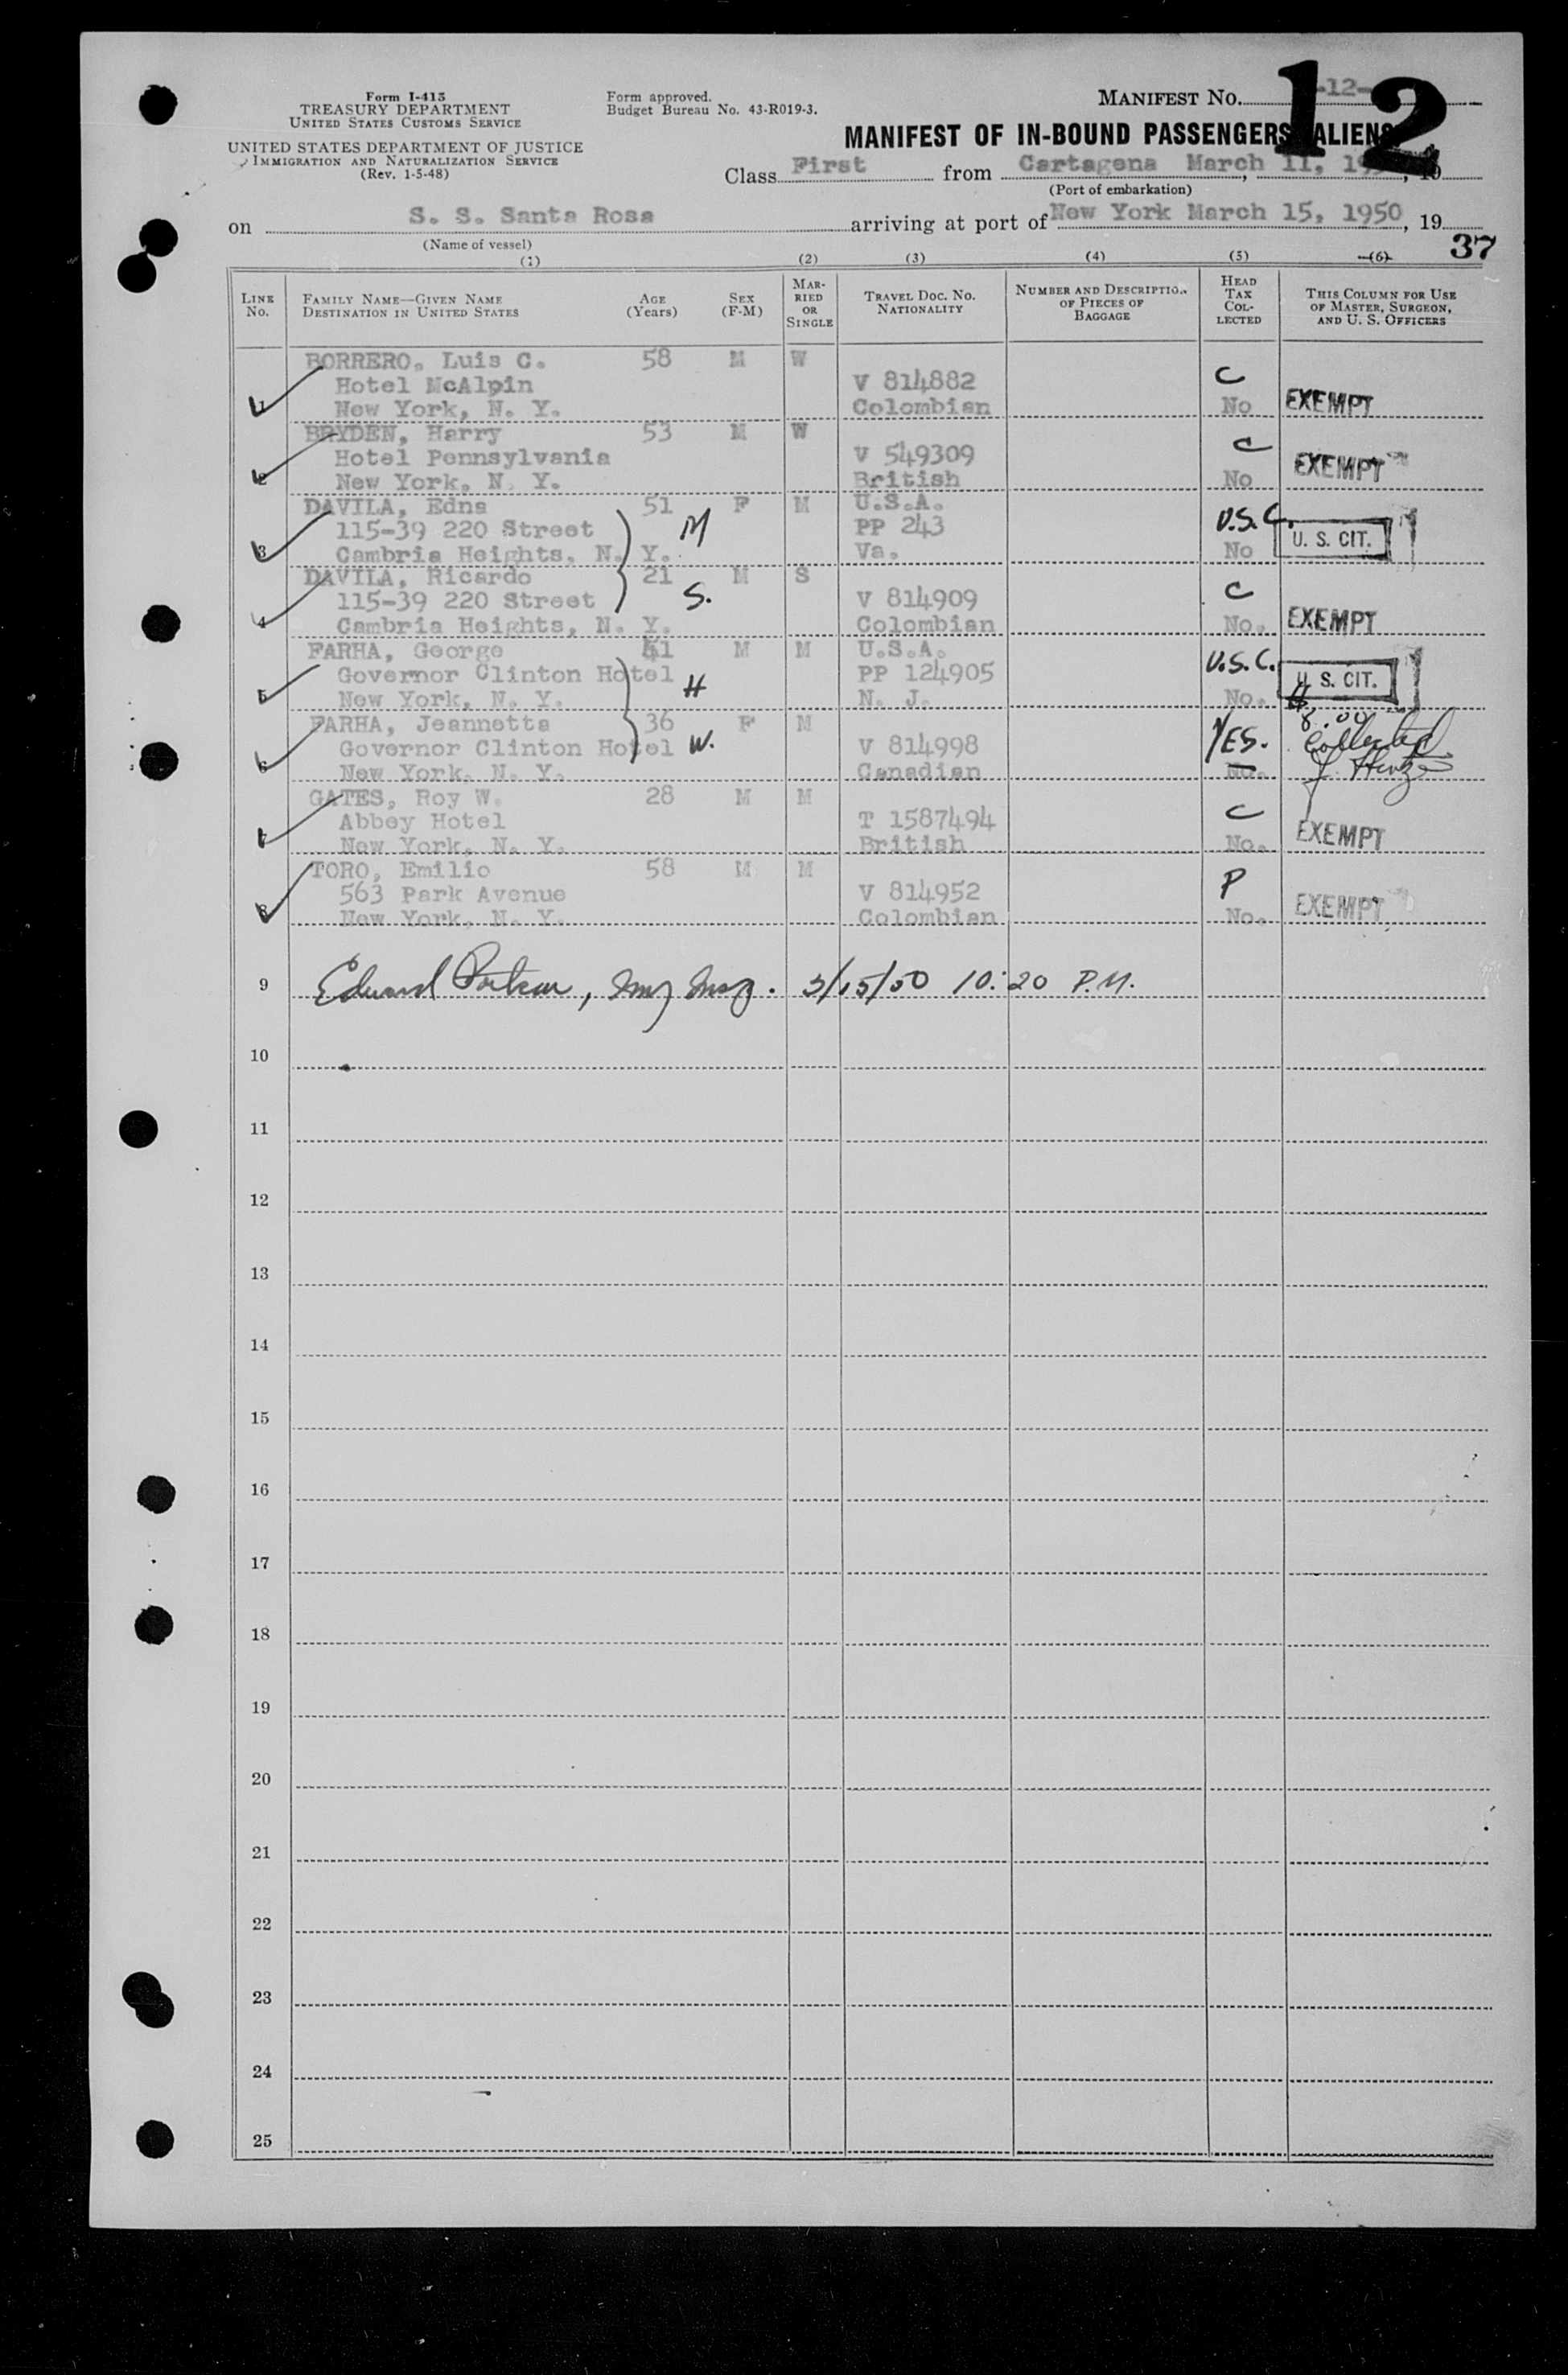 Form I-415
TREASURY DEPARTMENT
UNITED STATES CUSTOMS SERVICE
UNITED STATES DEPARTMENT OF JUSTICE
IMMIGRATION AND NATURALIZATION SERVICE
(Rev. 1-5-48)
Form approved.
Budget Bureau No. 43-R019-3.
MANIFEST No. -12-
12
MANIFEST OF IN-BOUND PASSENGERS ALIENS
Class First from Cartagena March 11, 19
(Port of embarkation)
on S. S. Santa Rosa arriving at port of New York March 15, 1950, 19
(Name of vessel)
37
(1) (2) (3) (4) (5) (6)
LINE No. FAMILY NAME—GIVEN NAME DESTINATION IN UNITED STATES AGE (Years) SEX (F-M) MARRIED OR SINGLE TRAVEL DOC. NO. NATIONALITY NUMBER AND DESCRIPTION OF PIECES OF BAGGAGE HEAD TAX COLLECTED THIS COLUMN FOR USE OF MASTER, SURGEON, AND U. S. OFFICERS
BORRERO, Luis C. 58 M W
Hotel McAlpin V 814882 C
1 New York, N. Y. Colombian No EXEMPT
BRYDEN, Harry 53 M W
Hotel Pennsylvania V 549309 C
2 New York, N. Y. British No EXEMPT
DAVILA, Edna 51 F M U.S.A.
115-39 220 Street M PP 243 U.S.C.
3 Cambria Heights, N. Y. Va. No U. S. CIT.
DAVILA, Ricardo 21 M S
115-39 220 Street S. V 814909 C
4 Cambria Heights, N. Y. Colombian No. EXEMPT
FARHA, George 41 M M U.S.A.
Governor Clinton Hotel H PP 124905 U.S.C.
5 New York, N. Y. N. J. No. U. S. CIT.
FARHA, Jeannette 36 F M $8.00
Governor Clinton Hotel W. V 814998 YES. Collected
6 New York, N. Y. Canadian No.
GATES, Roy W. 28 M M
Abbey Hotel T 1587494 C
7 New York, N. Y. British No. EXEMPT
TORO, Emilio 58 M M
563 Park Avenue V 814952 P
8 New York, N. Y. Colombian No. EXEMPT
9 Edward , Imm Insp. 3/15/50 10:20 P.M.
10
11
12
13
14
15
16
17
18
19
20
21
22
23
24
25